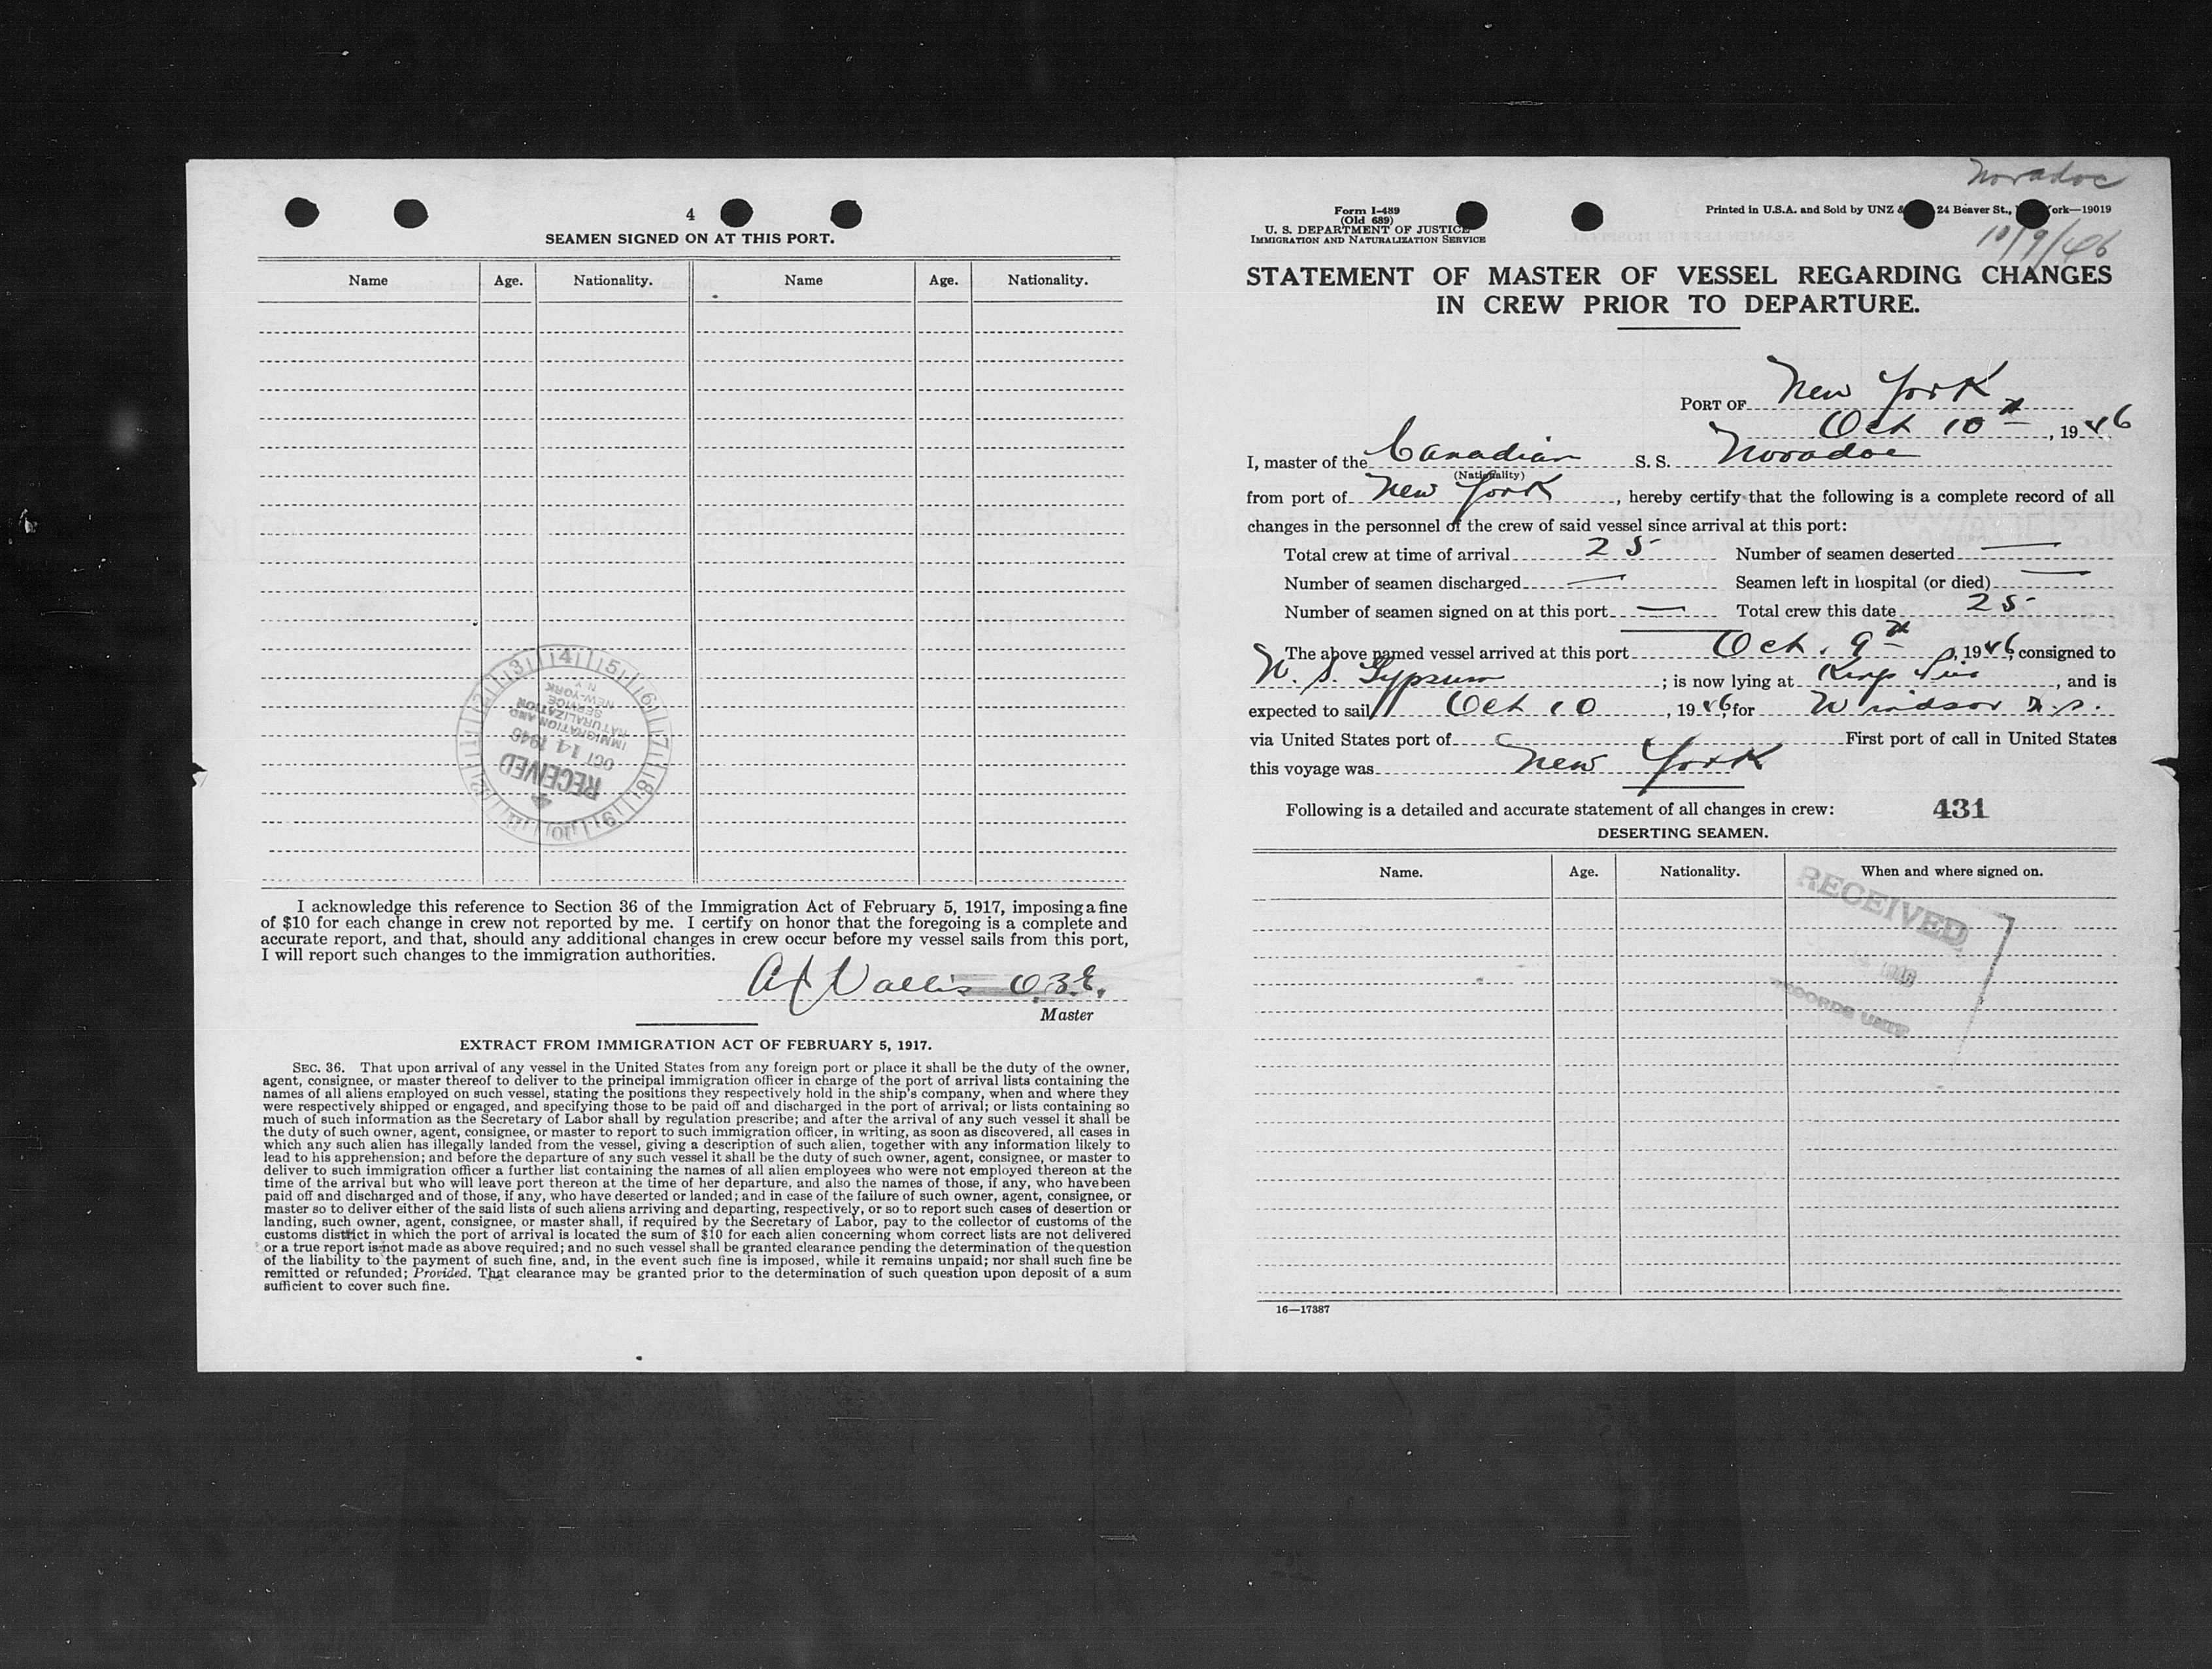 4
SEAMEN SIGNED ON AT THIS PORT.
Name Age. Nationality. Name Age. Nationality.
RECEIVED
OCT 14 1946
IMMIGRATION AND
NATURALIZATION
SERVICE
NEW-YORK
N.Y.
I acknowledge this reference to Section 36 of the Immigration Act of February 5, 1917, imposing a fine
of $10 for each change in crew not reported by me. I certify on honor that the foregoing is a complete and
accurate report, and that, should any additional changes in crew occur before my vessel sails from this port,
I will report such changes to the immigration authorities.
Vallis O.B.E.
Master
EXTRACT FROM IMMIGRATION ACT OF FEBRUARY 5, 1917.
SEC. 36. That upon arrival of any vessel in the United States from any foreign port or place it shall be the duty of the owner,
agent, consignee, or master thereof to deliver to the principal immigration officer in charge of the port of arrival lists containing the
names of all aliens employed on such vessel, stating the positions they respectively hold in the ship's company, when and where they
were respectively shipped or engaged, and specifying those to be paid off and discharged in the port of arrival; or lists containing so
much of such information as the Secretary of Labor shall by regulation prescribe; and after the arrival of any such vessel it shall be
the duty of such owner, agent, consignee, or master to report to such immigration officer, in writing, as soon as discovered, all cases in
which any such alien has illegally landed from the vessel, giving a description of such alien, together with any information likely to
lead to his apprehension; and before the departure of any such vessel it shall be the duty of such owner, agent, consignee, or master to
deliver to such immigration officer a further list containing the names of all alien employees who were not employed thereon at the
time of the arrival but who will leave port thereon at the time of her departure, and also the names of those, if any, who have been
paid off and discharged and of those, if any, who have deserted or landed; and in case of the failure of such owner, agent, consignee, or
master so to deliver either of the said lists of such aliens arriving and departing, respectively, or so to report such cases of desertion or
landing, such owner, agent, consignee, or master shall, if required by the Secretary of Labor, pay to the collector of customs of the
customs district in which the port of arrival is located the sum of $10 for each alien concerning whom correct lists are not delivered
or a true report is not made as above required; and no such vessel shall be granted clearance pending the determination of the question
of the liability to the payment of such fine, and, in the event such fine is imposed, while it remains unpaid; nor shall such fine be
remitted or refunded; Provided, That clearance may be granted prior to the determination of such question upon deposit of a sum
sufficient to cover such fine.
Noradoc
10/9/46
Form I-489
(Old 689)
U. S. DEPARTMENT OF JUSTICE
IMMIGRATION AND NATURALIZATION SERVICE
Printed in U.S.A. and Sold by UNZ & 24 Beaver St., ork—19019
STATEMENT OF MASTER OF VESSEL REGARDING CHANGES
IN CREW PRIOR TO DEPARTURE.
PORT OF New York
Oct 10th, 1946
I, master of the Canadian S. S. Noradoc
(Nationality)
from port of New York, hereby certify that the following is a complete record of all
changes in the personnel of the crew of said vessel since arrival at this port:
Total crew at time of arrival 25 Number of seamen deserted —
Number of seamen discharged — Seamen left in hospital (or died) —
Number of seamen signed on at this port — Total crew this date 25
The above named vessel arrived at this port Oct. 9th, 1946, consigned to
U. S. Gypsum; is now lying at Kings Pier, and is
expected to sail Oct 10, 1946, for Windsor N.S.
via United States port of First port of call in United States
this voyage was New York
Following is a detailed and accurate statement of all changes in crew: 431
DESERTING SEAMEN.
Name. Age. Nationality. When and where signed on.
RECEIVED
RECORDS UNIT
16—17387